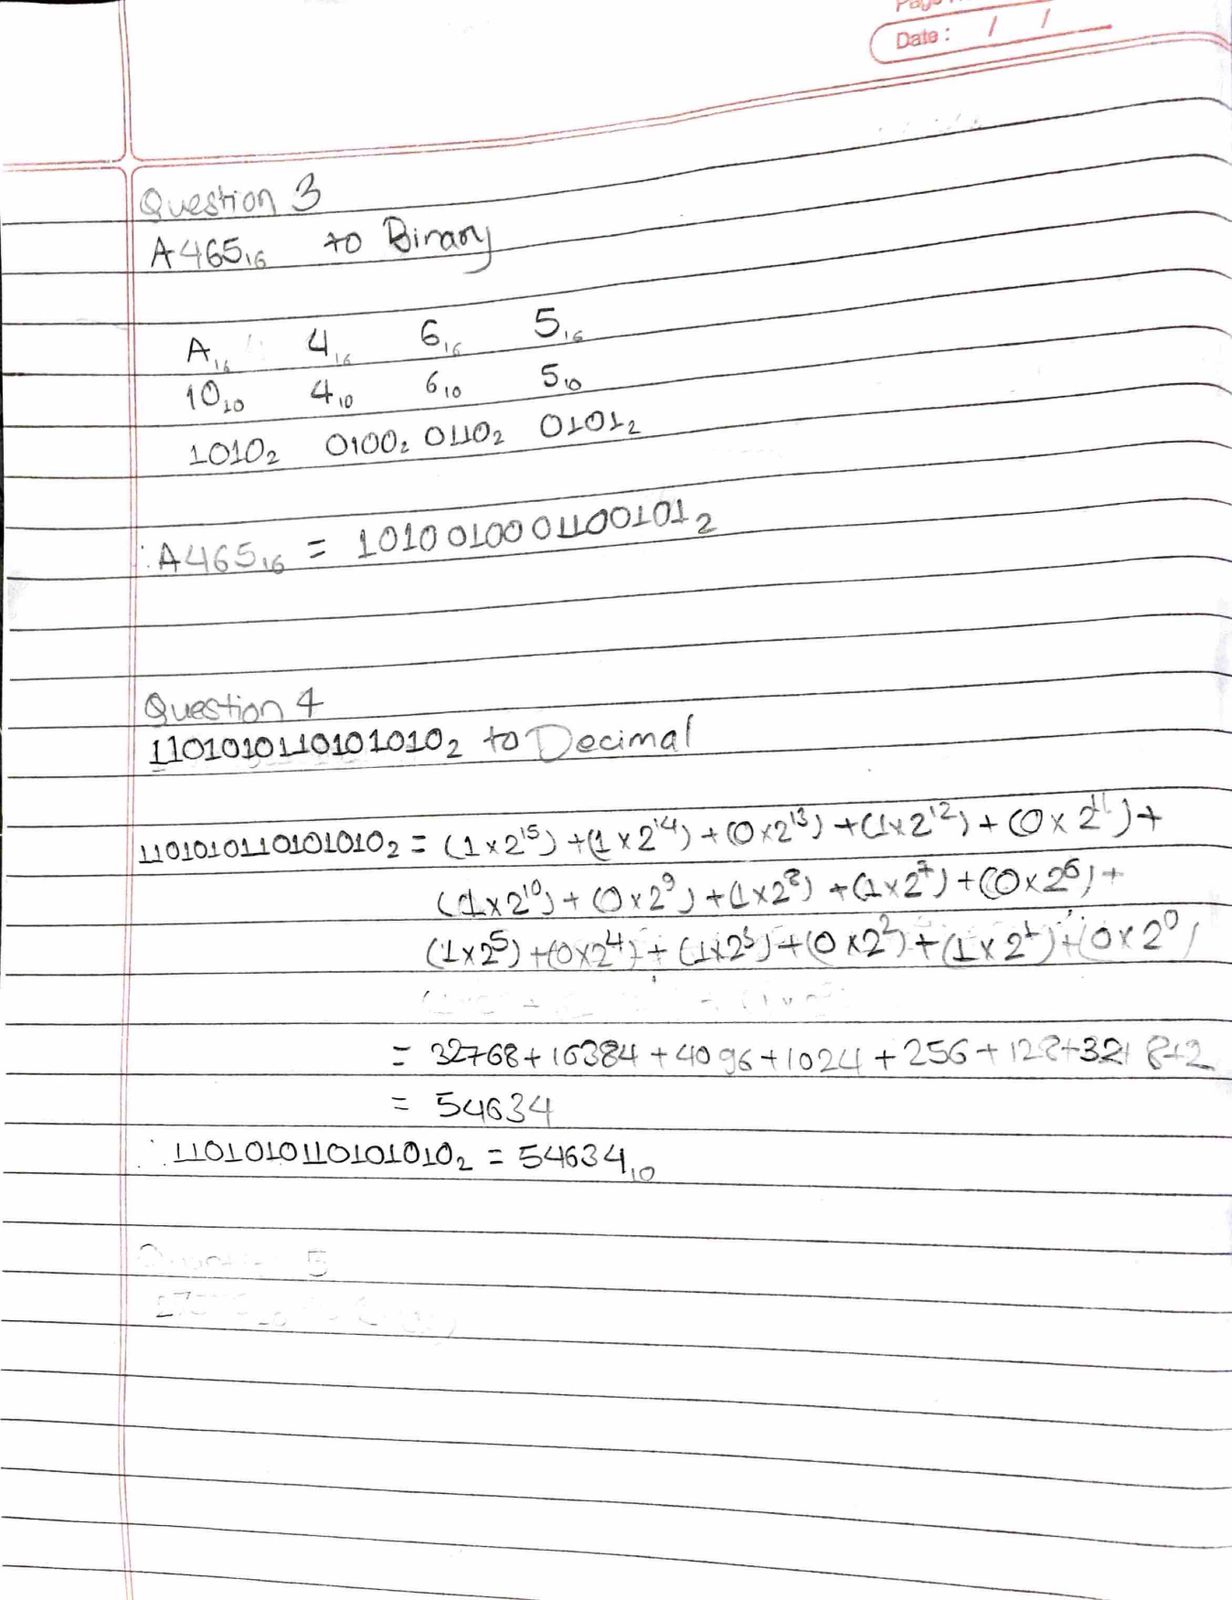 Page
Date : / /
Question 3
A465₁₆ to Binary
A₁₆ 4₁₆ 6₁₆ 5₁₆
10₁₀ 4₁₀ 6₁₀ 5₁₀
1010₂ 0100₂ 0110₂ 0101₂
∴ A465₁₆ = 1010010001100101₂
Question 4
1101010110101010₂ to Decimal
1101010110101010₂ = (1×2¹⁵) + (1×2¹⁴) + (0×2¹³) + (1×2¹²) + (0×2¹¹) +
(1×2¹⁰) + (0×2⁹) + (1×2⁸) + (1×2⁷) + (0×2⁶) +
(1×2⁵) + (0×2⁴) + (1×2³) + (0×2²) + (1×2¹) + (0×2⁰)
= 32768 + 16384 + 4096 + 1024 + 256 + 128 + 32 + 8 + 2
= 54634
∴ 1101010110101010₂ = 54634₁₀